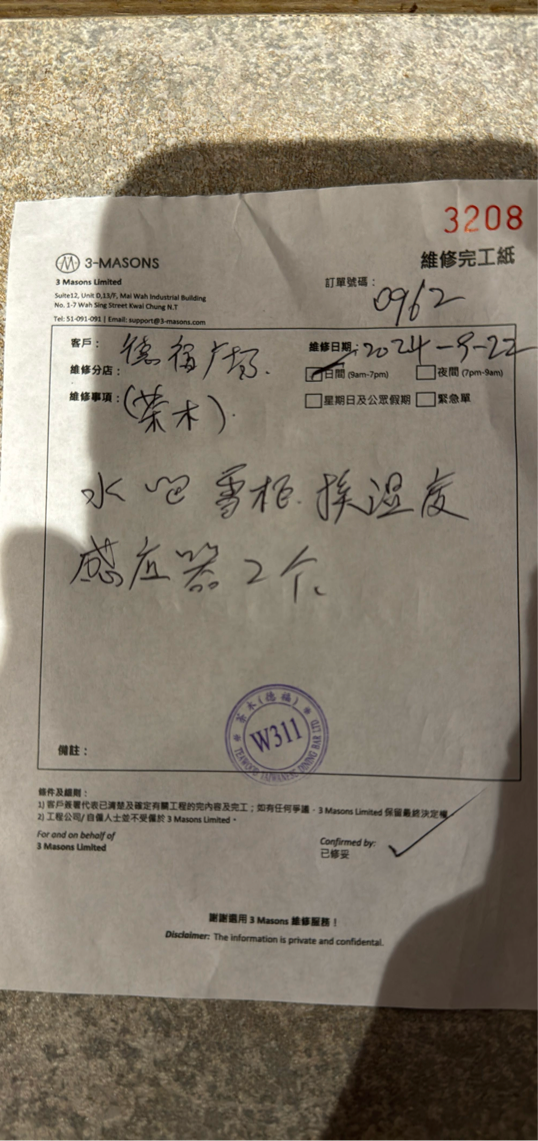 3208
3-MASONS
維修完工紙
3 Masons Limited
訂單號碼：
0962
Suite12, Unit D,13/F, Mai Wah Industrial Building
No. 1-7 Wah Sing Street Kwai Chung N.T
Tel: 51-091-091 | Email: support@3-masons.com
客戶： 德福广场.
維修日期：2024-9-22
維修分店：
日間 (9am-7pm) 夜間 (7pm-9am)
維修事項：(茶木).
星期日及公眾假期 緊急單
水吧雪柜.换湿度
感应器2个、
茶木(德福)
W311
TEAWOOD TAIWANESE DINING BAR LTD
備註：
條件及細則：
1) 客戶簽署代表已清楚及確定有關工程的完內容及完工；如有任何爭議，3 Masons Limited 保留最終決定權
2) 工程公司/ 自僱人士並不受僱於 3 Masons Limited。
For and on behalf of
3 Masons Limited
Confirmed by:
已修妥
謝謝選用 3 Masons 維修服務！
Disclaimer: The information is private and confidental.